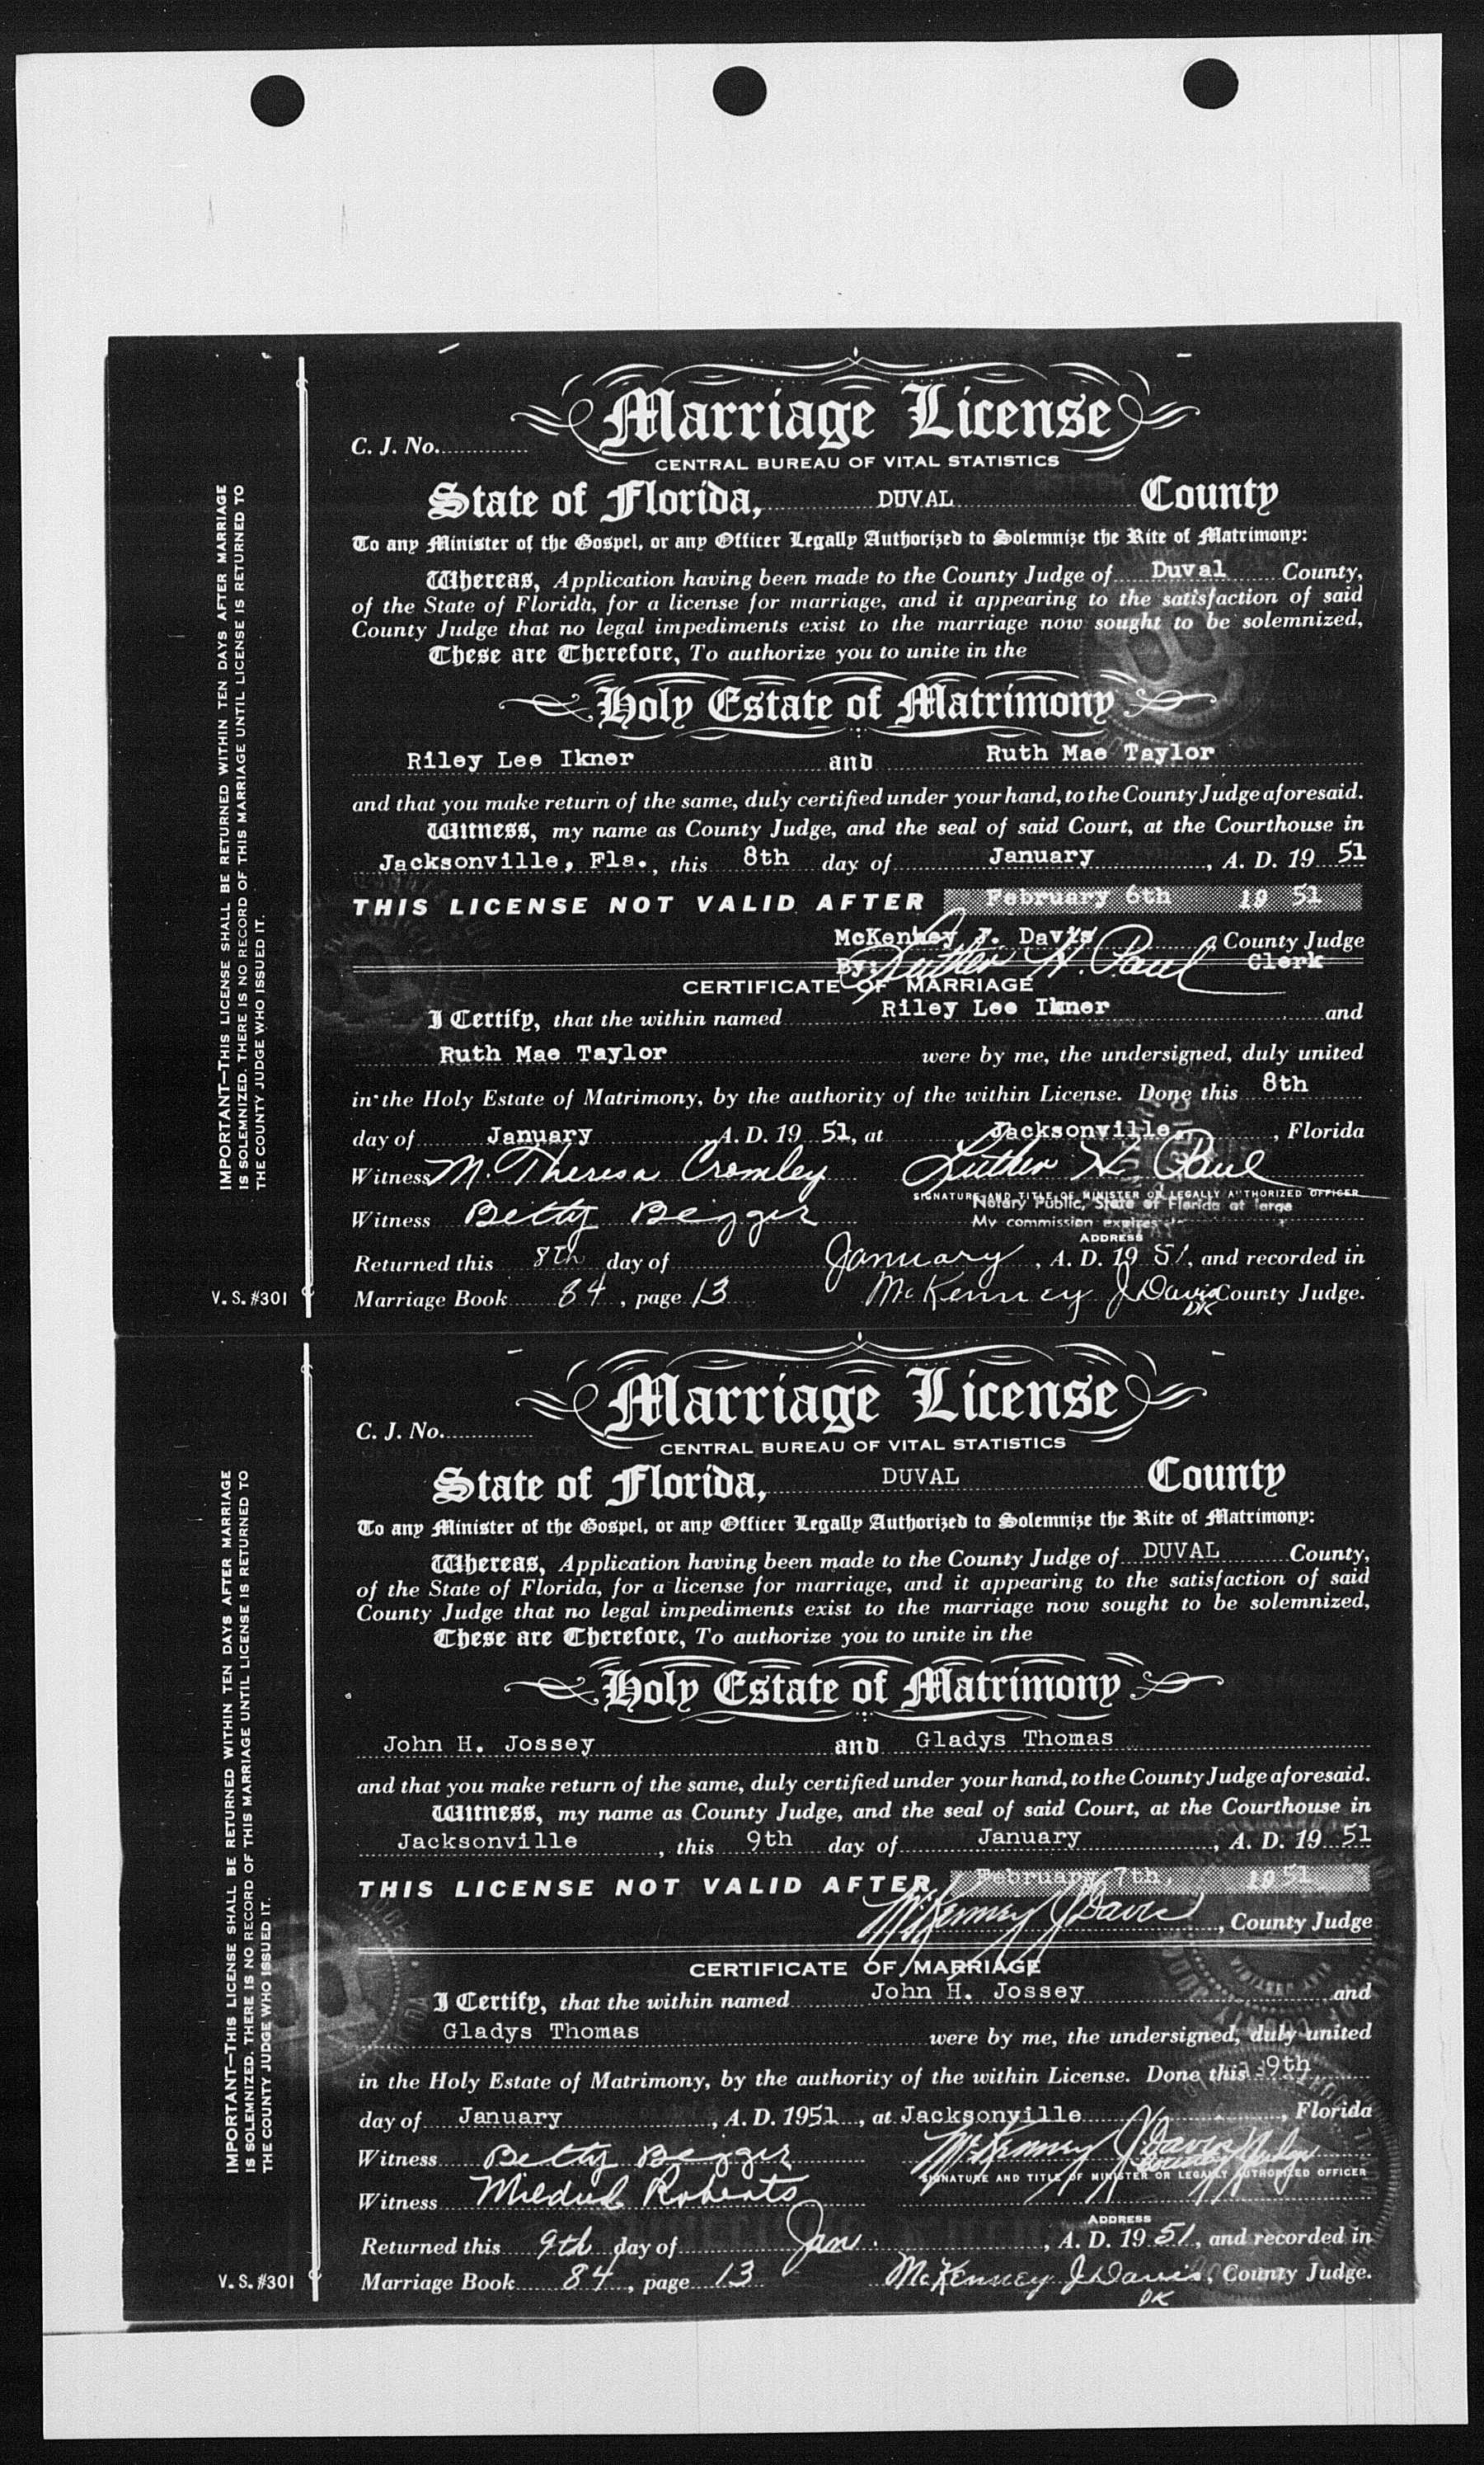 Marriage License
C. J. No.
CENTRAL BUREAU OF VITAL STATISTICS
State of Florida, DUVAL County
To any Minister of the Gospel, or any Officer Legally Authorized to Solemnize the Rite of Matrimony:
Whereas, Application having been made to the County Judge of Duval County,
of the State of Florida, for a license for marriage, and it appearing to the satisfaction of said
County Judge that no legal impediments exist to the marriage now sought to be solemnized,
These are Therefore, To authorize you to unite in the
Holy Estate of Matrimony
Riley Lee Ikner and Ruth Mae Taylor
and that you make return of the same, duly certified under your hand, to the County Judge aforesaid.
Witness, my name as County Judge, and the seal of said Court, at the Courthouse in
Jacksonville, Fla., this 8th day of January, A. D. 19 51
THIS LICENSE NOT VALID AFTER February 6th 19 51
McKenney J. Davis, County Judge
By: Luther H. Paul Clerk
CERTIFICATE OF MARRIAGE
I Certify, that the within named Riley Lee Ikner and
Ruth Mae Taylor were by me, the undersigned, duly united
in the Holy Estate of Matrimony, by the authority of the within License. Done this 8th
day of January, A. D. 19 51, at Jacksonville, Florida
Witness M. Theresa Cromley Luther H. Paul
SIGNATURE AND TITLE OF MINISTER OR LEGALLY AUTHORIZED OFFICER
Notary Public, State of Florida at large
Witness Betty Begger My commission expires
ADDRESS
Returned this 8th day of January, A. D. 19 51, and recorded in
Marriage Book 84, page 13 McKenney J Davis County Judge.
DK
V. S. #301
IMPORTANT—THIS LICENSE SHALL BE RETURNED WITHIN TEN DAYS AFTER MARRIAGE
IS SOLEMNIZED. THERE IS NO RECORD OF THIS MARRIAGE UNTIL LICENSE IS RETURNED TO
THE COUNTY JUDGE WHO ISSUED IT.
Marriage License
C. J. No.
CENTRAL BUREAU OF VITAL STATISTICS
State of Florida, DUVAL County
To any Minister of the Gospel, or any Officer Legally Authorized to Solemnize the Rite of Matrimony:
Whereas, Application having been made to the County Judge of DUVAL County,
of the State of Florida, for a license for marriage, and it appearing to the satisfaction of said
County Judge that no legal impediments exist to the marriage now sought to be solemnized,
These are Therefore, To authorize you to unite in the
Holy Estate of Matrimony
John H. Jossey and Gladys Thomas
and that you make return of the same, duly certified under your hand, to the County Judge aforesaid.
Witness, my name as County Judge, and the seal of said Court, at the Courthouse in
Jacksonville, this 9th day of January, A. D. 19 51
THIS LICENSE NOT VALID AFTER February 7th, 1951
McKenney J Davis, County Judge
CERTIFICATE OF MARRIAGE
I Certify, that the within named John H. Jossey and
Gladys Thomas were by me, the undersigned, duly united
in the Holy Estate of Matrimony, by the authority of the within License. Done this 9th
day of January, A. D. 1951, at Jacksonville, Florida
Witness Betty Begger McKenney J Davis County Judge
SIGNATURE AND TITLE OF MINISTER OR LEGALLY AUTHORIZED OFFICER
Witness Mildred Roberts
ADDRESS
Returned this 9th day of Jan., A. D. 19 51, and recorded in
Marriage Book 84, page 13 McKenney J Davis, County Judge.
DK
V. S. #301
IMPORTANT—THIS LICENSE SHALL BE RETURNED WITHIN TEN DAYS AFTER MARRIAGE
IS SOLEMNIZED. THERE IS NO RECORD OF THIS MARRIAGE UNTIL LICENSE IS RETURNED TO
THE COUNTY JUDGE WHO ISSUED IT.